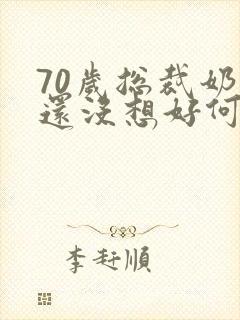 70歲總裁奶
還沒想好何
李赶順